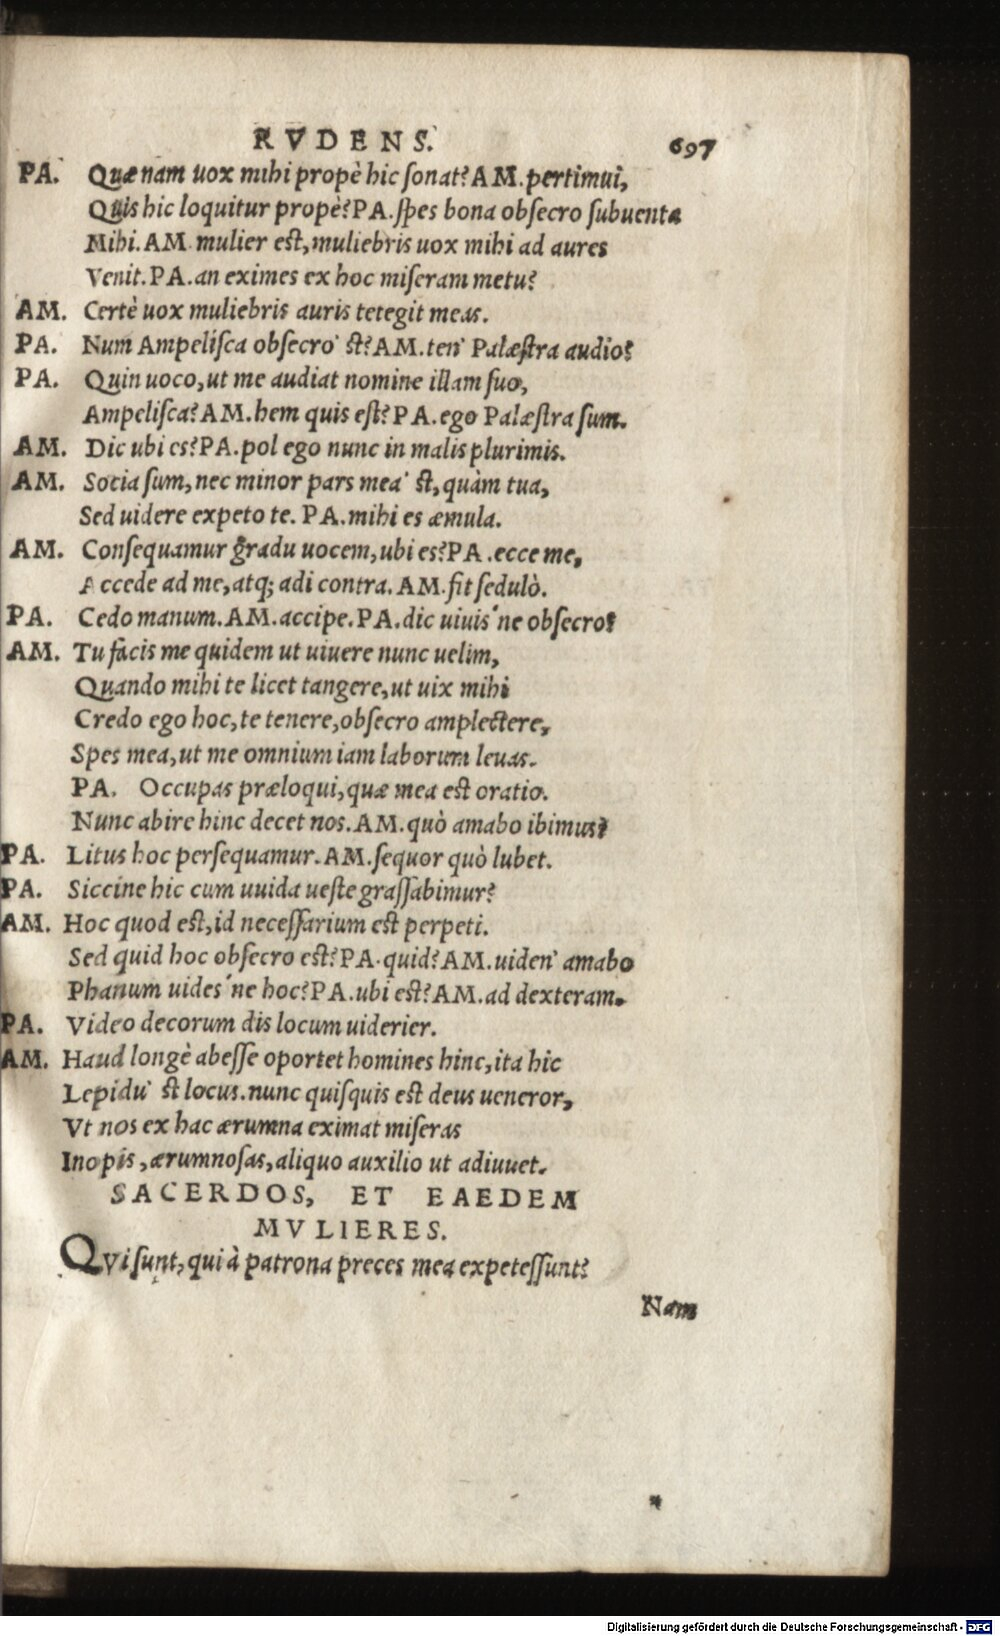 RVDENS. 697
PA. Quænam uox mihi propè hic ſonat? AM. pertimui,
Quis hic loquitur propè? PA. ſpes bona obſecro ſubuenta
Mihi. AM. mulier eſt, muliebris uox mihi ad aures
Venit. PA. an eximes ex hoc miſeram metu?
AM. Certè uox muliebris auris tetegit meas.
PA. Num Ampeliſca obſecro' ſt? AM. ten' Palæſtra audio?
PA. Quin uoco, ut me audiat nomine illam ſuo,
Ampeliſca? AM. hem quis eſt? PA. ego Palæſtra ſum.
AM. Dic ubi es? PA. pol ego nunc in malis plurimis.
AM. Socia ſum, nec minor pars mea' ſt, quàm tua,
Sed uidere expeto te. PA. mihi es æmula.
AM. Conſequamur gradu uocem, ubi es? PA. ecce me,
Accede ad me, atq; adi contra. AM. fit ſedulò.
PA. Cedo manum. AM. accipe. PA. dic uiuis'ne obſecro?
AM. Tu facis me quidem ut uiuere nunc uelim,
Quando mihi te licet tangere, ut uix mihi
Credo ego hoc, te tenere, obſecro amplectere,
Spes mea, ut me omnium iam laborum leuas.
PA. Occupas præloqui, quæ mea eſt oratio.
Nunc abire hinc decet nos. AM. quò amabo ibimus?
PA. Litus hoc perſequamur. AM. ſequor quò lubet.
PA. Siccine hic cum uuida ueſte graſſabimur?
AM. Hoc quod eſt, id neceſſarium eſt perpeti.
Sed quid hoc obſecro eſt? PA. quid? AM. uiden' amabo
Phanum uides'ne hoc? PA. ubi eſt? AM. ad dexteram.
PA. Video decorum dis locum uiderier.
AM. Haud longè abeſſe oportet homines hinc, ita hic
Lepidu' ſt locus. nunc quiſquis eſt deus ueneror,
Vt nos ex hac ærumna eximat miſeras
Inopis, ærumnoſas, aliquo auxilio ut adiuuet.
SACERDOS, ET EAEDEM
MVLIERES.
QVi ſunt, qui à patrona preces mea expeteſſunt?
Nam
*
Digitalisierung gefördert durch die Deutsche Forschungsgemeinschaft - DFG